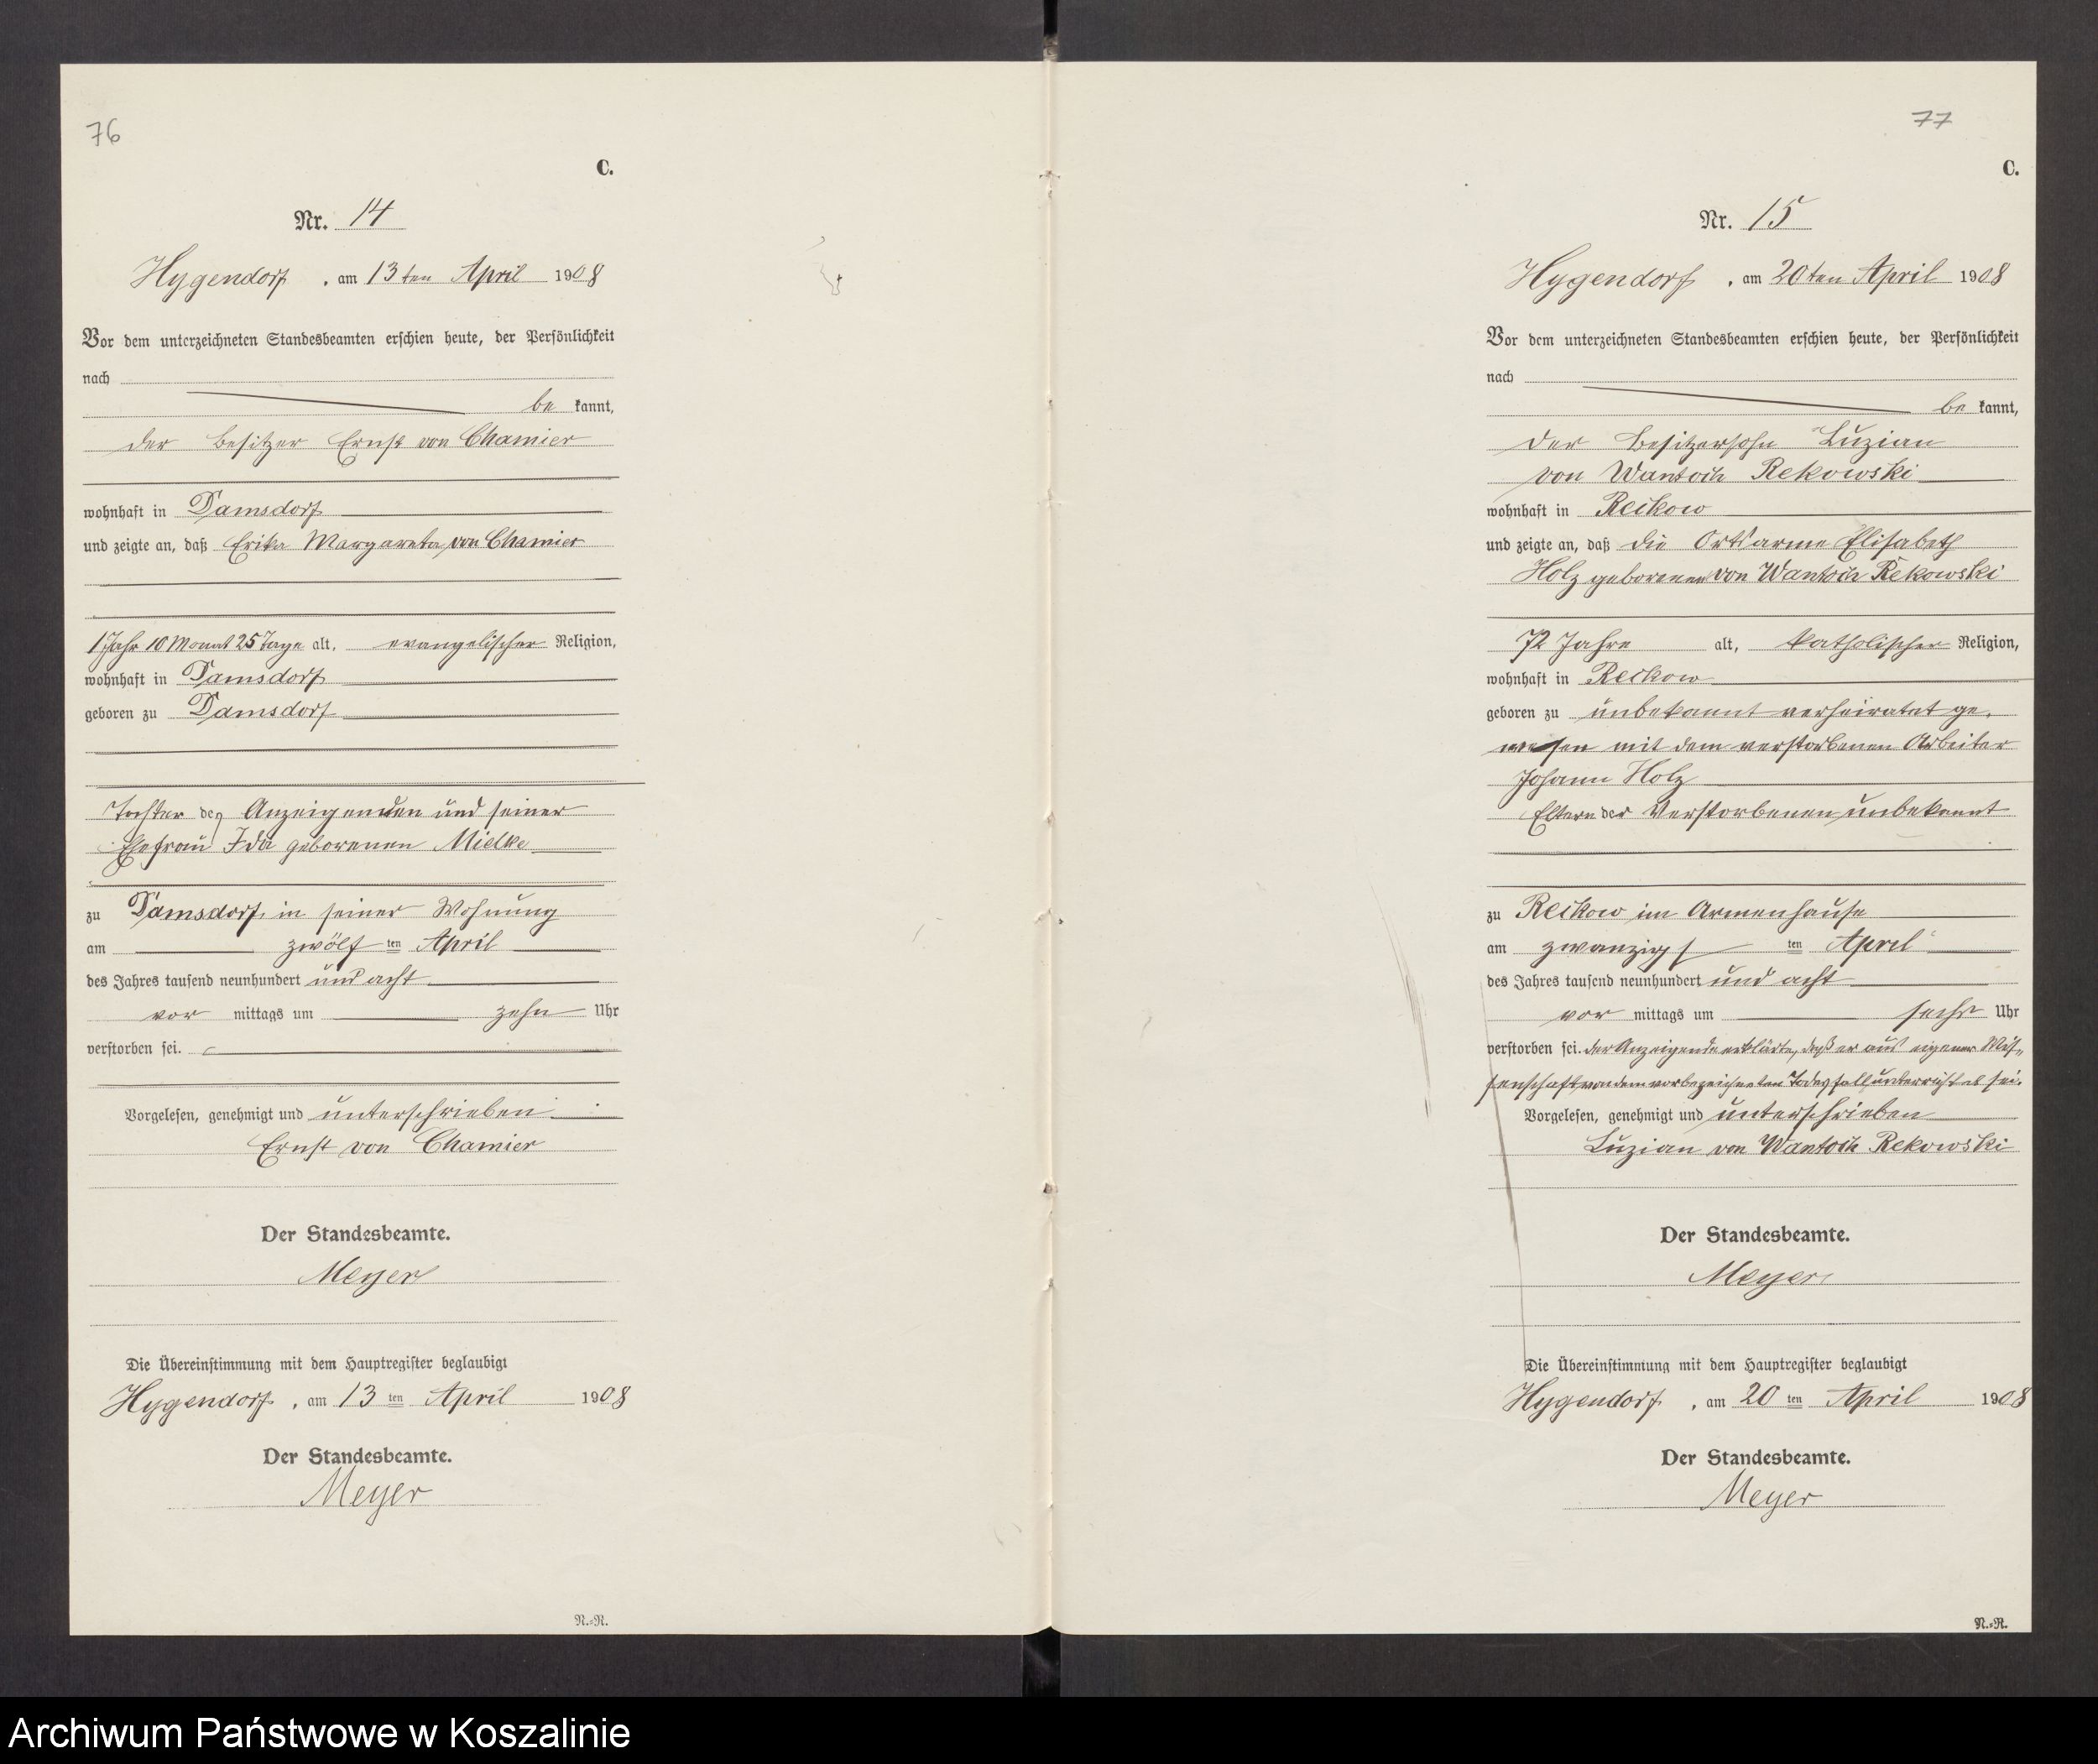 76
C.
Nr. 14
Hygendorf, am 13ten April 1908
Vor dem unterzeichneten Standesbeamten erschien heute, der Persönlichkeit
nach
be kannt,
der Besitzer Ernst von Chamier
wohnhaft in Damsdorf
und zeigte an, daß Erika Margareta von Chamier
1 Jahr 10 Monat 25 Tage alt, evangelischer Religion,
wohnhaft in Damsdorf
geboren zu Damsdorf
Tochter des Anzeigenden und seiner
Ehefrau Ida geborenen Mielke
zu Damsdorf, in seiner Wohnung
am zwölf ten April
des Jahres tausend neunhundert und acht
vor mittags um zehn Uhr
verstorben sei.
Vorgelesen, genehmigt und unterschrieben
Ernst von Chamier
Der Standesbeamte.
Meyer
Die Übereinstimmung mit dem Hauptregister beglaubigt
Hygendorf, am 13 ten April 1908
Der Standesbeamte.
Meyer
N.=R.
77
C.
Nr. 15
Hygendorf, am 20ten April 1908
Vor dem unterzeichneten Standesbeamten erschien heute, der Persönlichkeit
nach
be kannt,
der Besitzersohn Luzian
von Wantoch Rekowski
wohnhaft in Reckow
und zeigte an, daß die Ortsarme Elisabeth
Holz geborenen von Wantoch Rekowski
72 Jahre alt, katholischer Religion,
wohnhaft in Reckow
geboren zu unbekannt verheiratet ge-
wesen mit dem verstorbenen Arbeiter
Johann Holz
Eltern der Verstorbenen unbekannt
zu Reckow im Armenhause
am zwanzigs ten April
des Jahres tausend neunhundert und acht
vor mittags um sechs Uhr
verstorben sei. der Anzeigende erklärte, daß er aus eigener Wis-
senschaft von dem vorbezeichneten Todesfall unterrichtet sei.
Vorgelesen, genehmigt und unterschrieben
Luzian von Wantoch Rekowski
Der Standesbeamte.
Meyer
Die Übereinstimmung mit dem Hauptregister beglaubigt
Hygendorf, am 20 ten April 1908
Der Standesbeamte.
Meyer
N.=R.
Archiwum Państwowe w Koszalinie